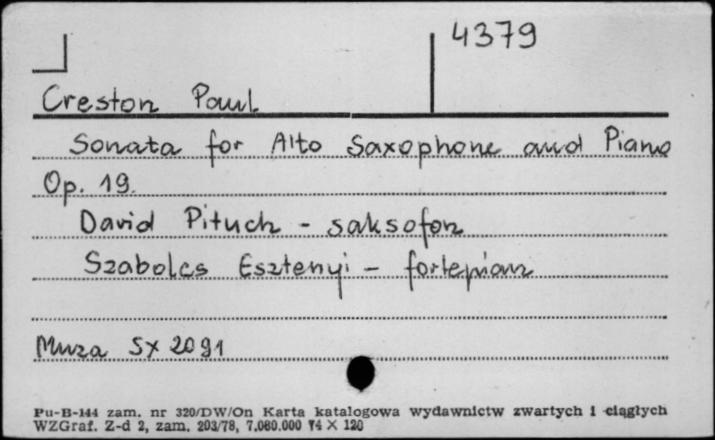 4379
Creston Paul
Sonata for Alto Saxophone and Piano
Op. 19.
David Pituch - saksofon
Szabolcs Esztenyi - fortepian
Muza SX 2091
Pu-B-144 zam. nr 320/DW/On Karta katalogowa wydawnictw zwartych i ciągłych
WZGraf. Z-d 2, zam. 203/78, 7.080.000 74 X 120